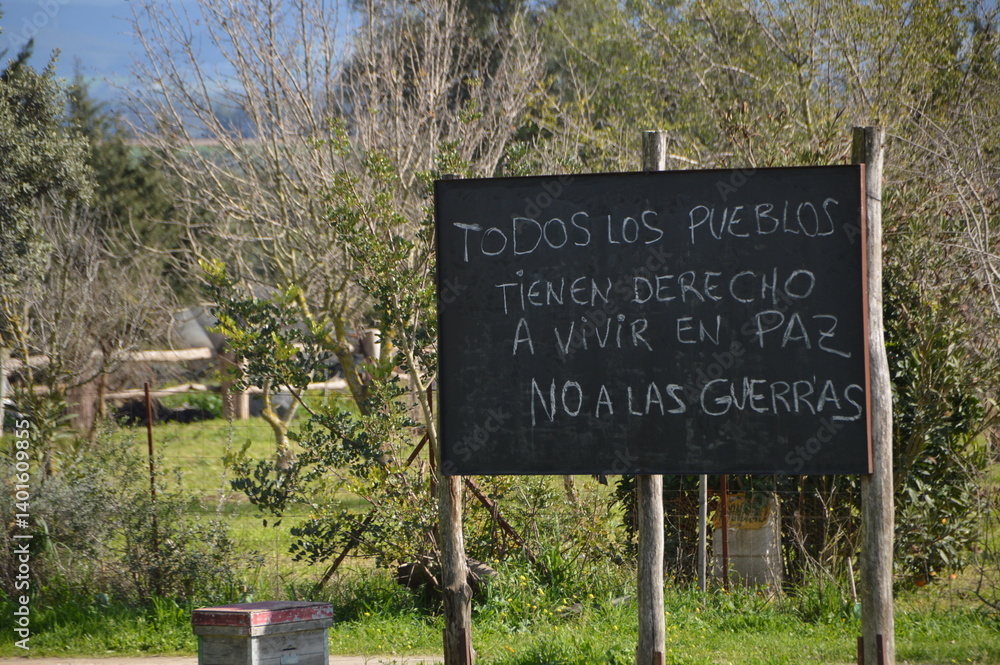 TODOS LOS PUEBLOS
TIENEN DERECHO
A VIVIR EN PAZ
NO A LAS GUERRAS
Adobe Stock | #1401609855